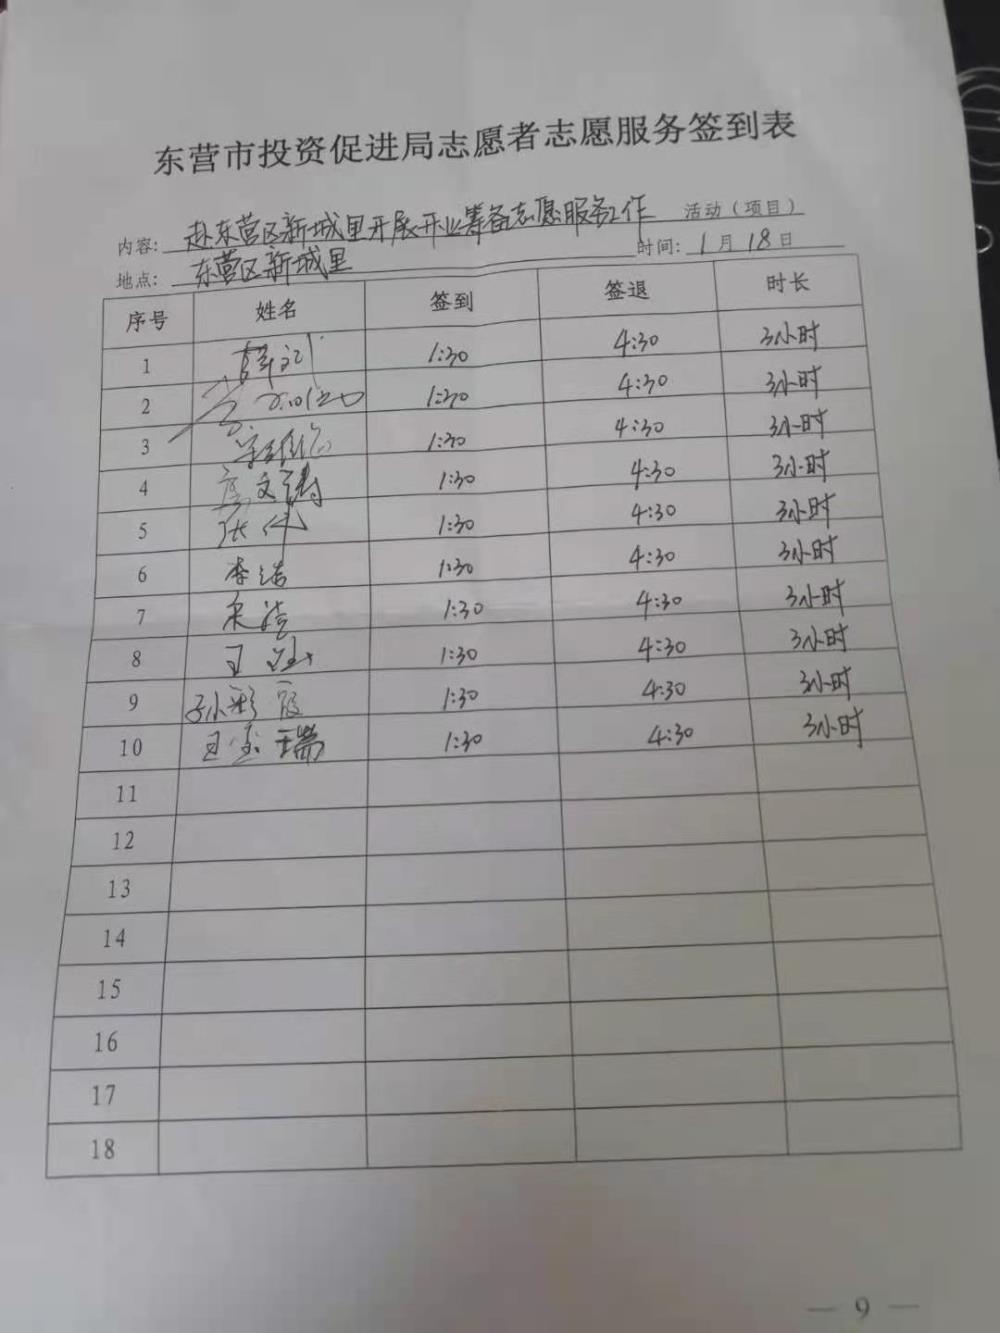 东营市投资促进局志愿者志愿服务签到表
内容: 赴东营区新城里开展开业筹备志愿服务工作 活动（项目）
地点: 东营区新城里 时间: 1月18日
序号 姓名 签到 签退 时长
1 1:30 4:30 3小时
2 1:30 4:30 3小时
3 1:30 4:30 3小时
4 文涛 1:30 4:30 3小时
5 张伟 1:30 4:30 3小时
6 李洁 1:30 4:30 3小时
7 1:30 4:30 3小时
8 王 1:30 4:30 3小时
9 孙彩霞 1:30 4:30 3小时
10 王宝瑞 1:30 4:30 3小时
11
12
13
14
15
16
17
18
— 9 —